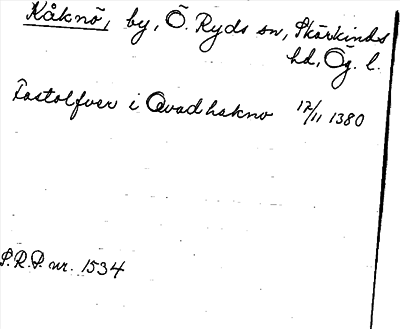 Kåknö, by, Ö. Ryds sn, Skärkinds
hd, Ög. l.
Fastolfver i Qvadhakno 17/11 1380
S.R.P. nr. 1534